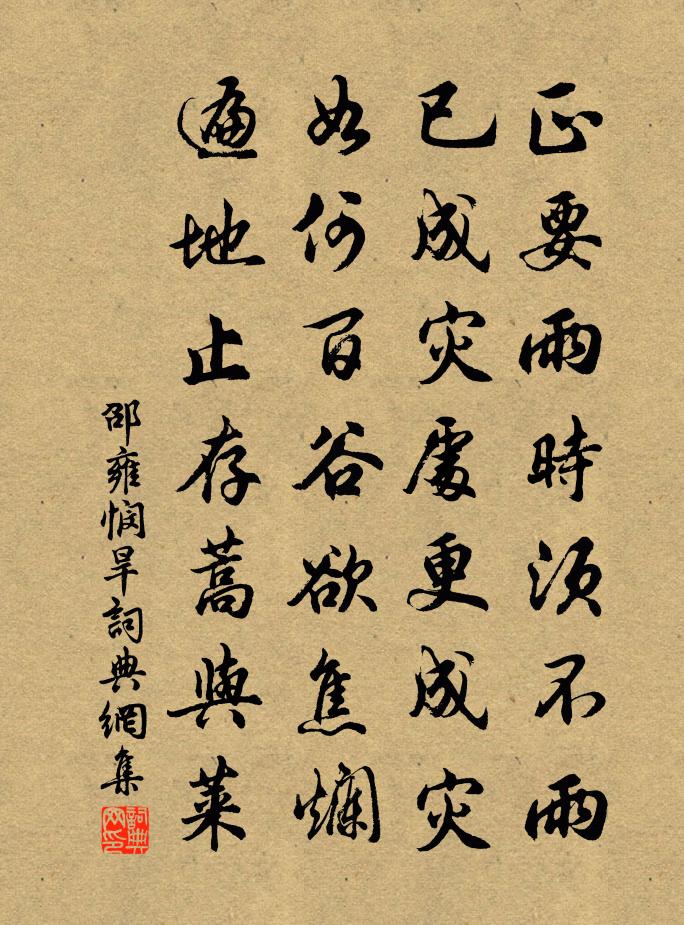 正要雨時須不雨
已成災處更成災
如何百谷欲焦爛
遍地止存蒿與萊
邵雍憫旱詞典網集
詞典網印